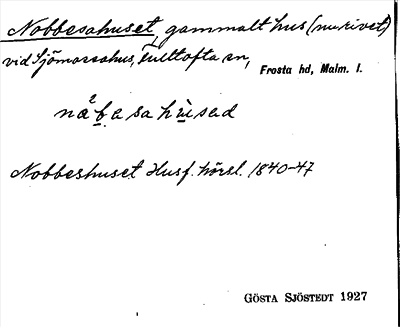 Nobbesahuset, gammalt hus (nu rivet)
vid Sjömossahus, Hulttofta sn,
Frosta hd, Malm. l.
Nobbeshuset Husf. hörsl. 1840–47
GÖSTA SJÖSTEDT 1927